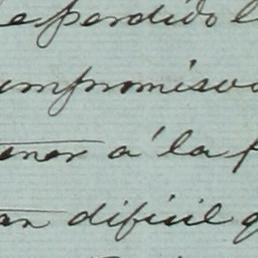 e perdido l
mpromiso
ener a' la f
an dificil q